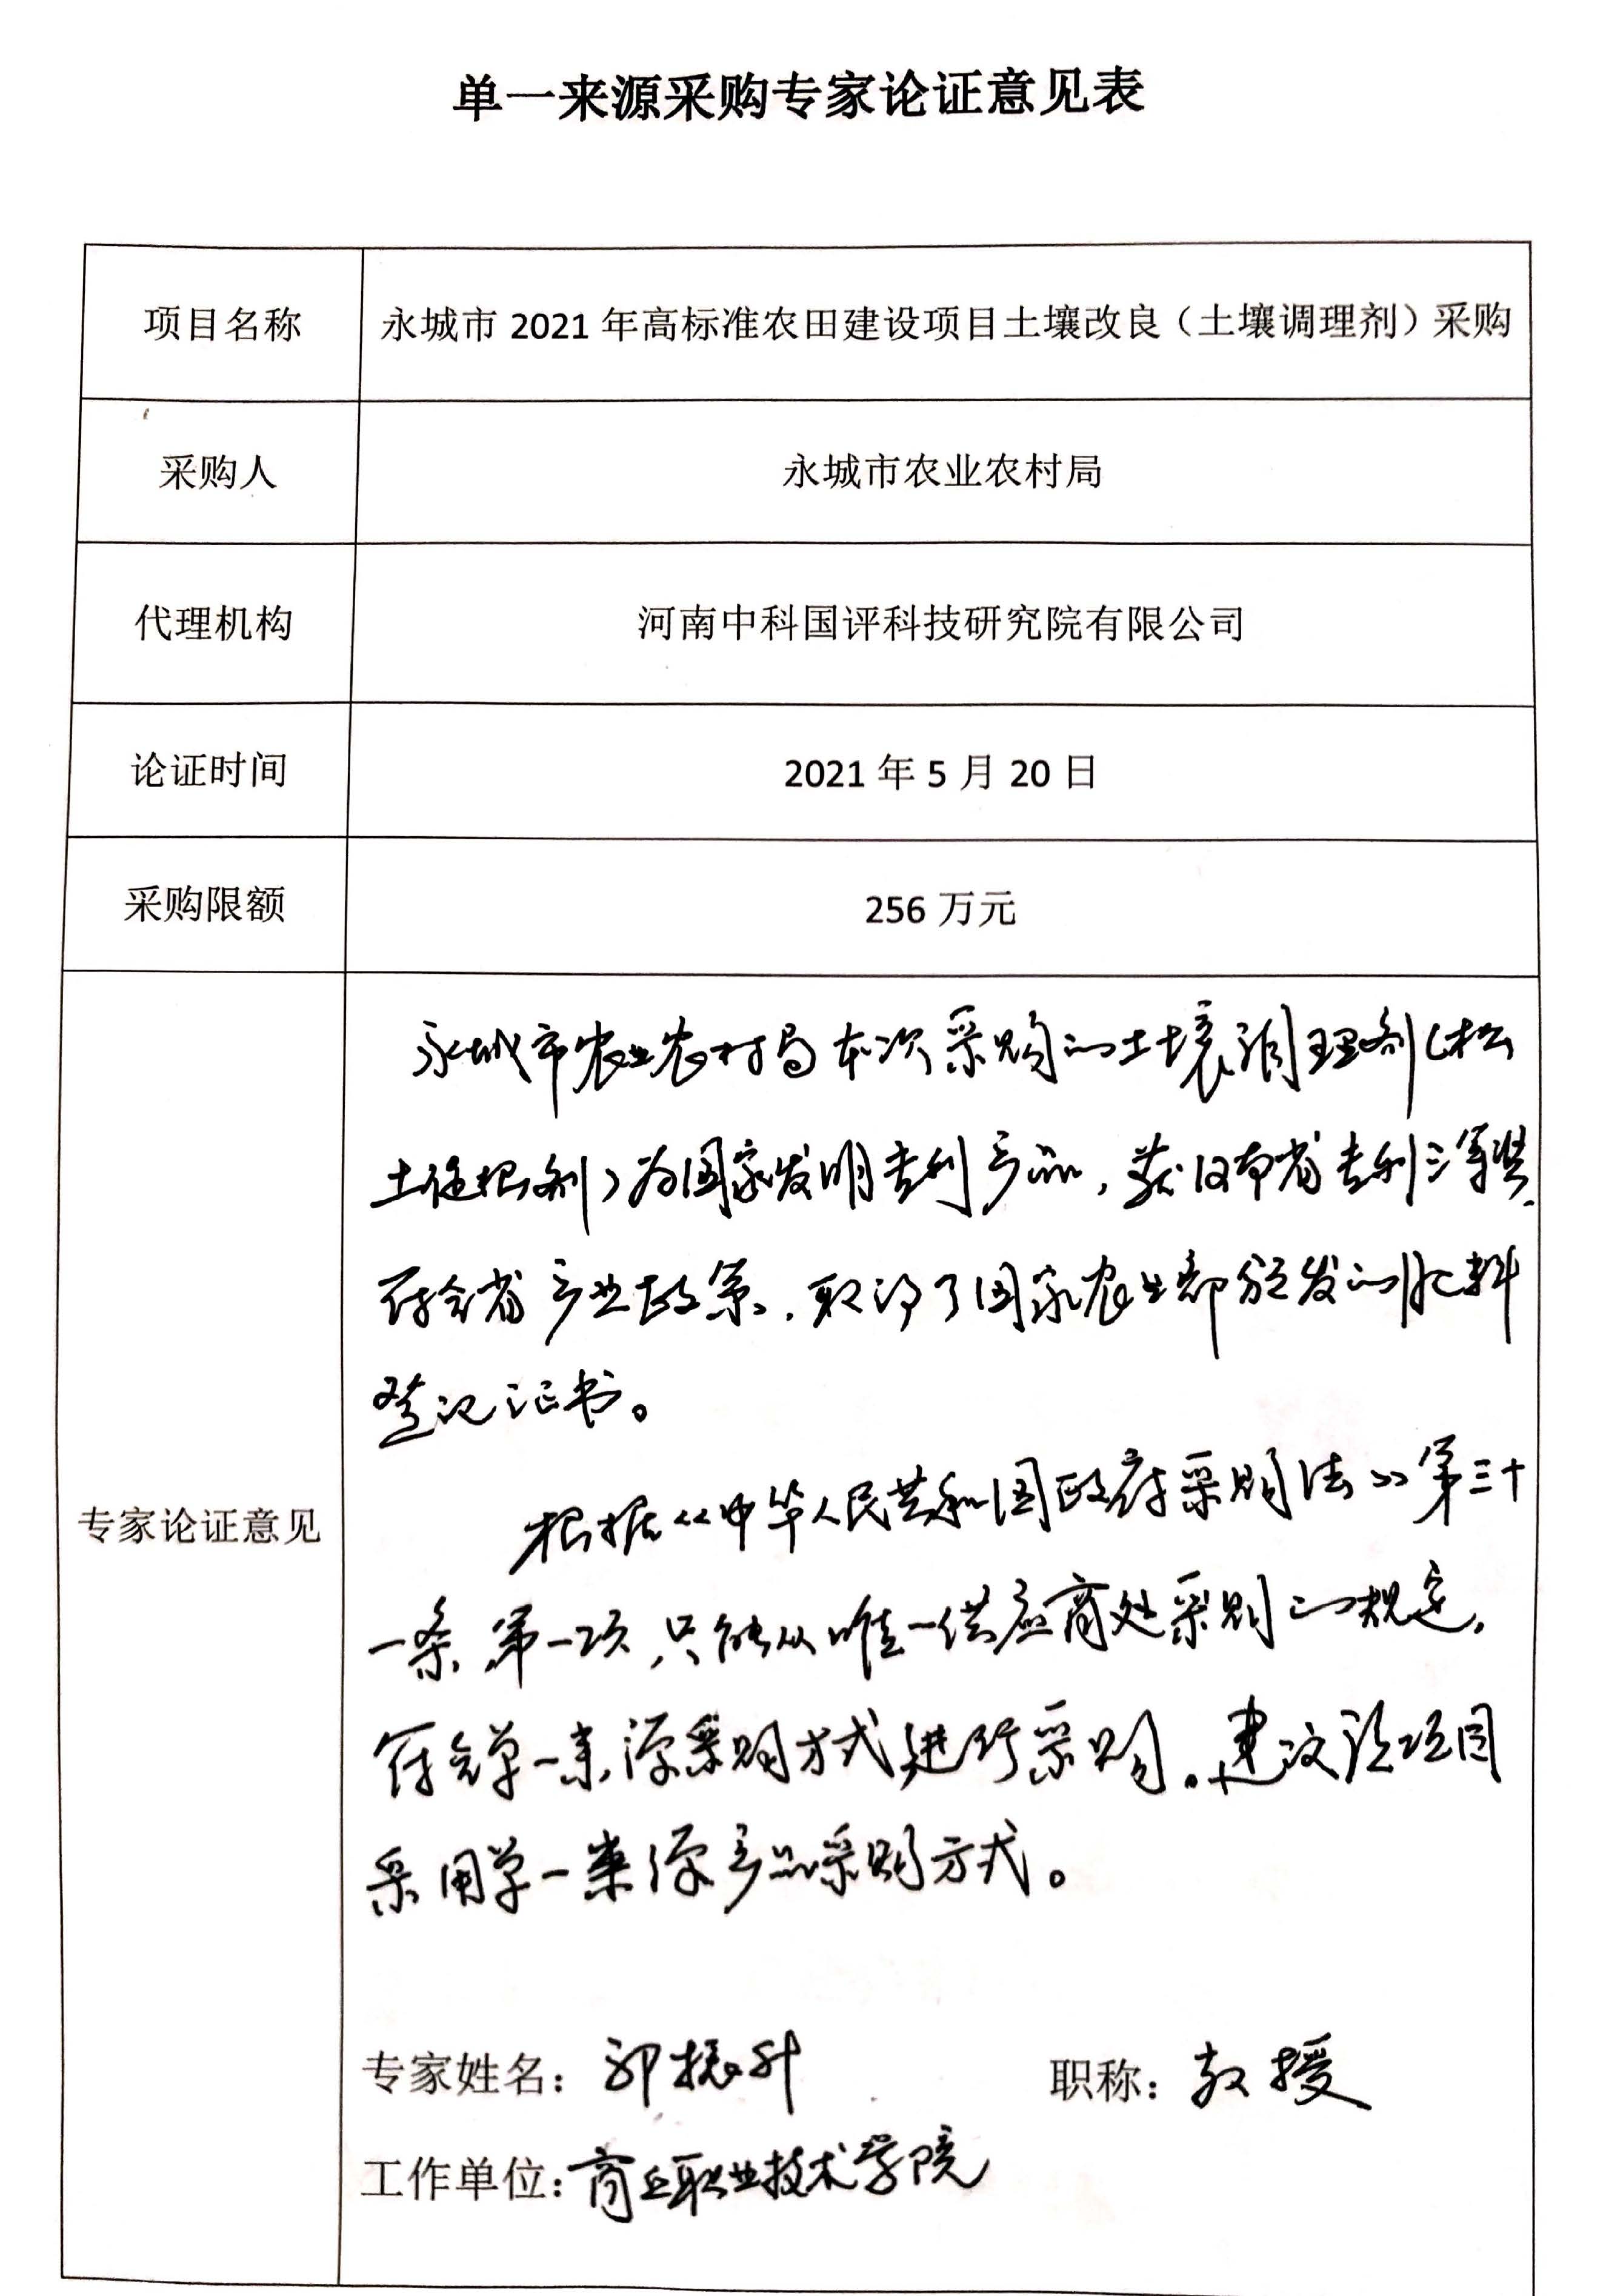 单一来源采购专家论证意见表
项目名称
永城市 2021 年高标准农田建设项目土壤改良（土壤调理剂）采购
采购人
永城市农业农村局
代理机构
河南中科国评科技研究院有限公司
论证时间
2021 年 5 月 20 日
采购限额
256 万元
专家论证意见
永城市农业农村局本次采购的土壤调理剂（松
土促根剂）为国家发明专利产品，获河南省专利三等奖，
符合省产业政策，取得了国家农业部颁发的肥料
登记证书。
根据《中华人民共和国政府采购法》第三十
一条第一项，只能从唯一供应商处采购的规定，
符合单一来源采购方式进行采购。建议该项目
采用单一来源产品采购方式。
专家姓名：郭振升 职称：教授
工作单位：商丘职业技术学院